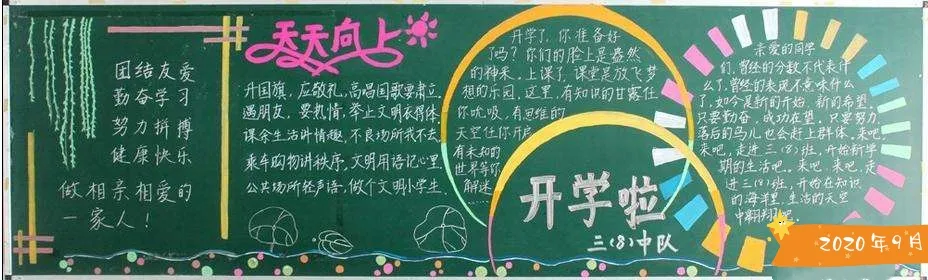 团结友爱
勤奋学习
努力拼搏
健康快乐
做相亲相爱的
一家人！
天天向上
升国旗，应敬礼，高唱国歌要肃立。
遇朋友，要热情，举止文明衣得体
课余生活讲情趣，不良场所我不去。
乘车购物讲秩序，文明用语记心里
公共场所轻声语，做个文明小学生。
开学了，你准备好
了吗？你们的脸上是盎然
的神采，上课了，课堂是放飞梦
想的乐园，这里，有知识的甘露任
你吮吸，有思维的
天空任你开启
有未知的
世界等你
解迷
开学啦
三(8)中队
亲爱的同学
们，曾经的分数不代表什
么了，曾经的表现不意味什么
了，如今是新的开始，新的希望。
只要勤奋，成功在望。只要努力，
落后的马儿也会赶上群体。来吧，
来吧，走进三(8)班，开始新学
期的生活吧。来吧，来吧，走
进三(8)班，开始在知识
的海洋里，生活的天空
中翱翔吧。
2020年9月